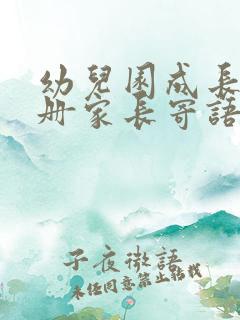 幼兒園成長
冊家長寄語
子夜微語
未经同意禁止转载